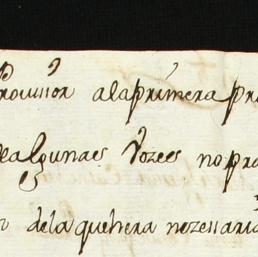 Provissor a la primera pro
de algunas Vozes no pro
r de la que hera nezessaria